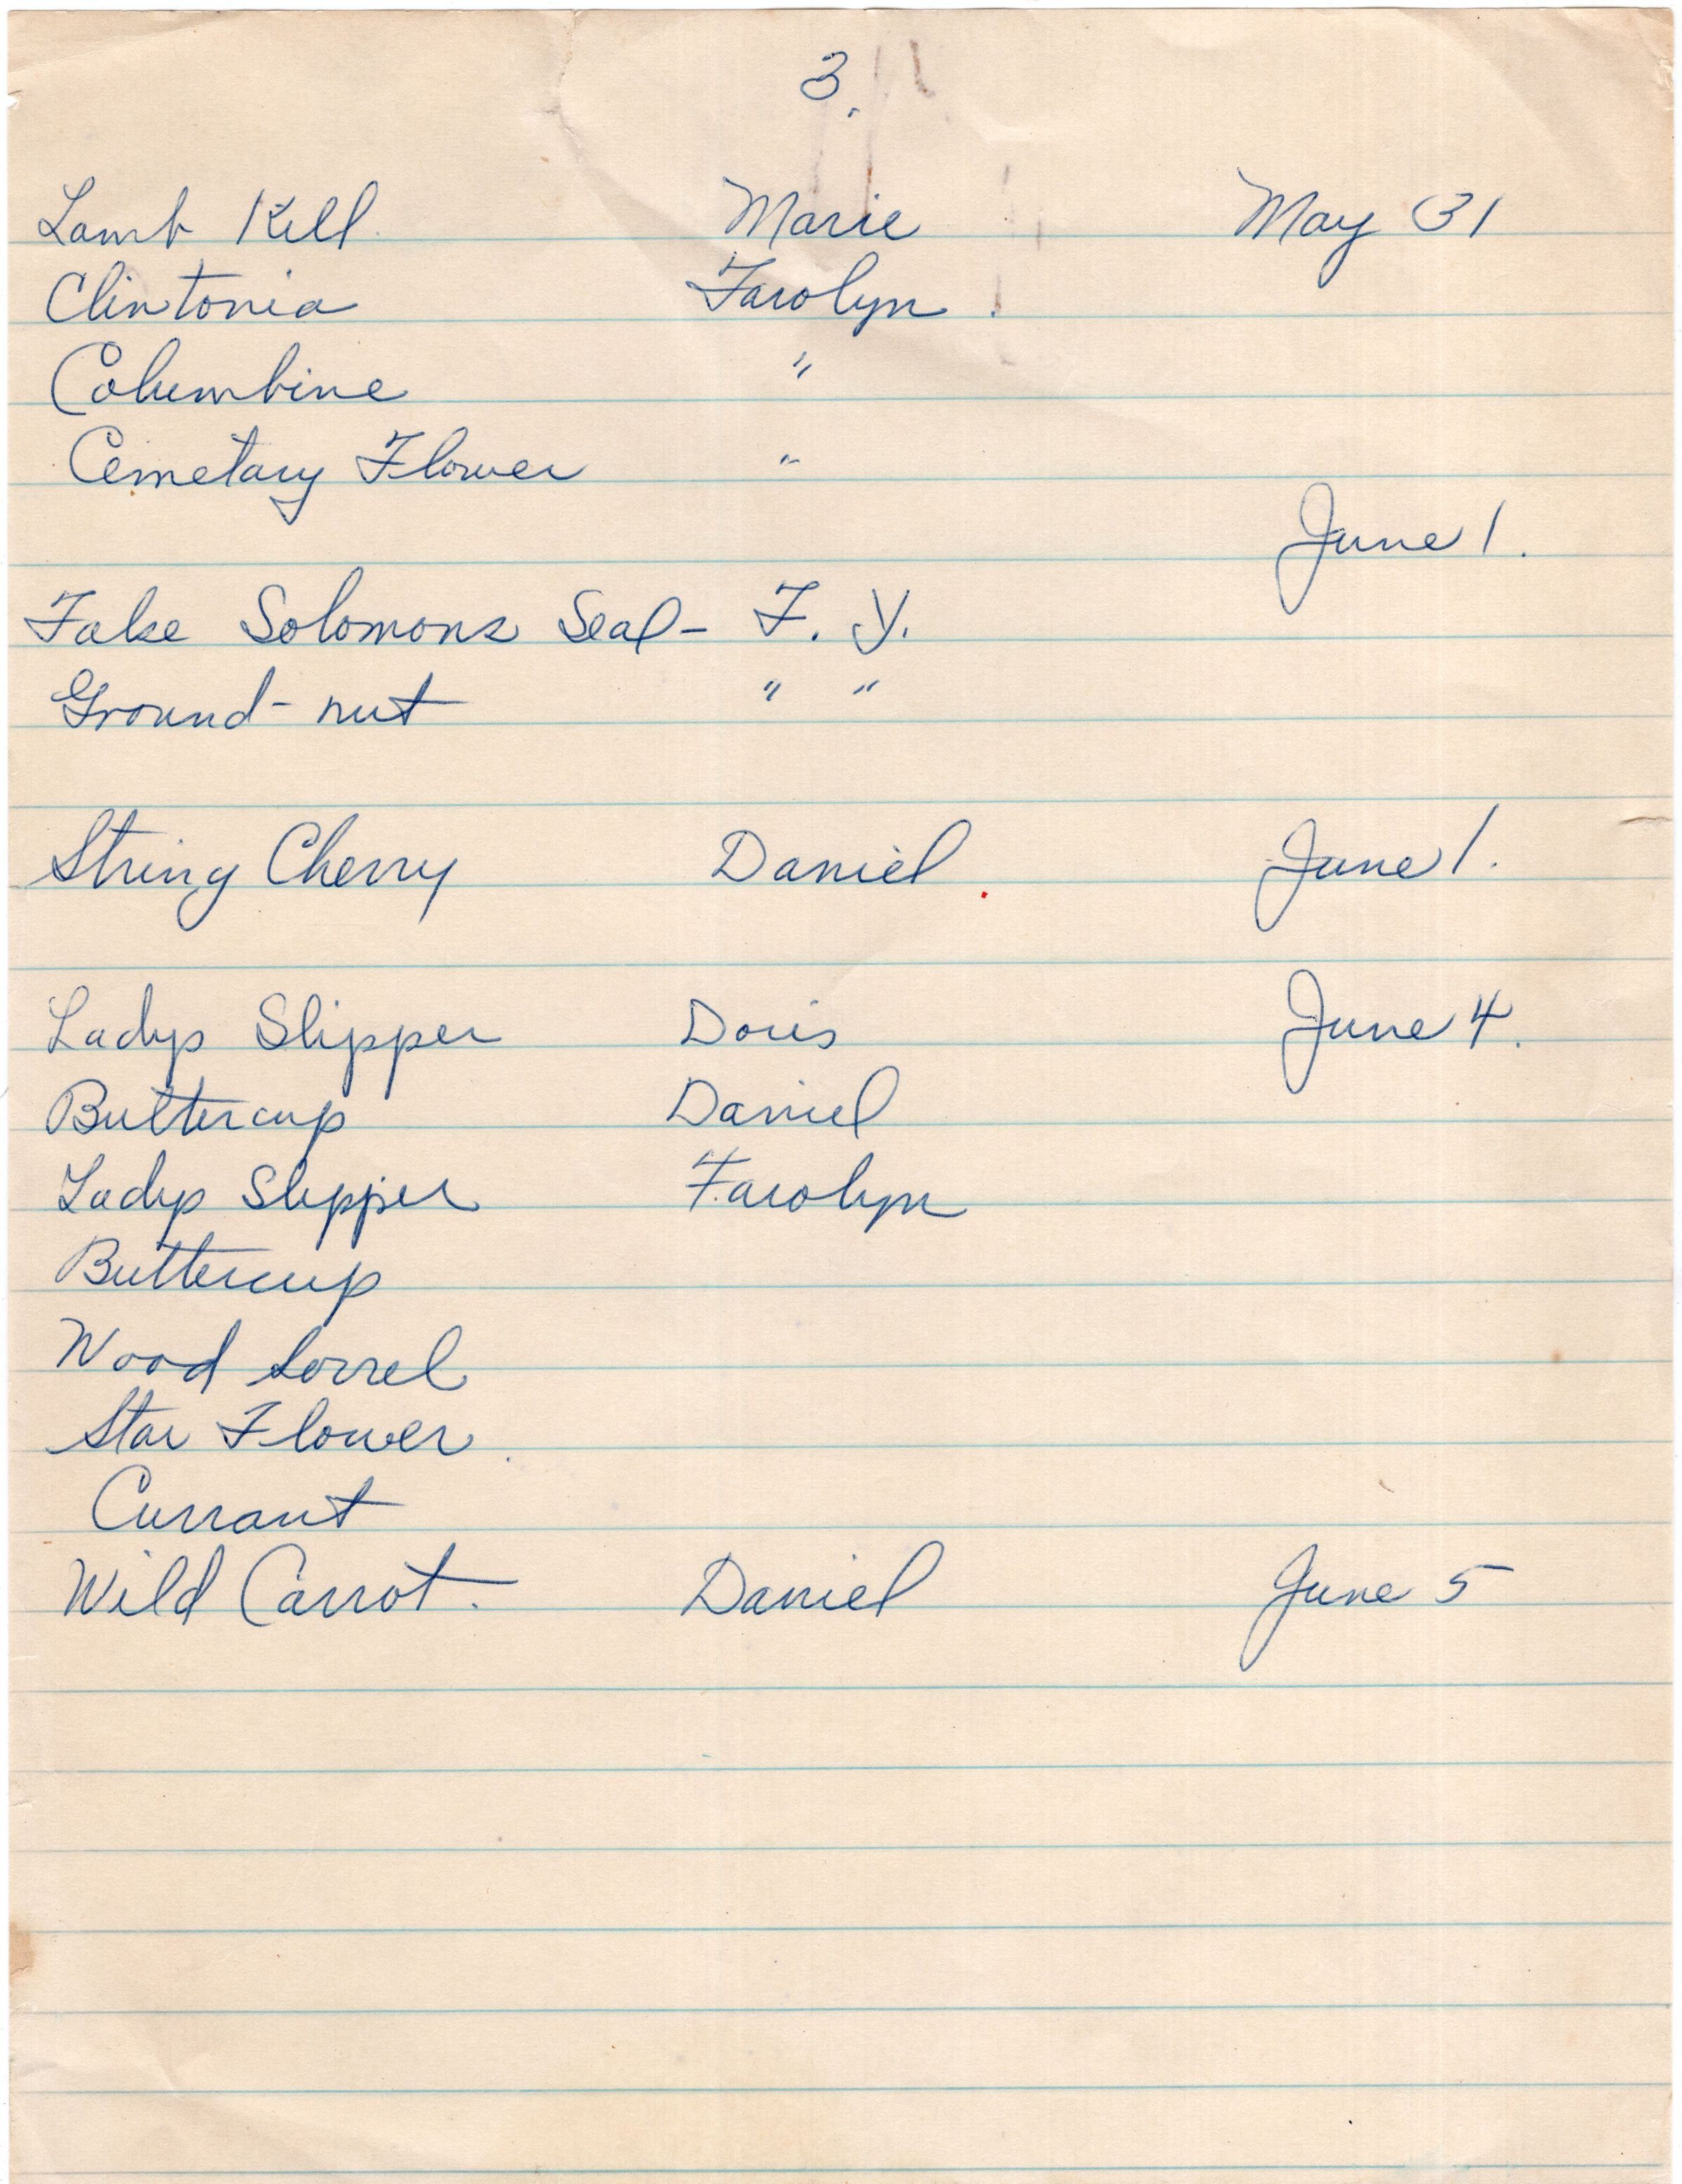 3.
Lamb Kill Marie May 31
Clintonia Farolyn
Columbine "
Cemetary Flower "
June 1.
False Solomons Seal - F. Y.
Ground-nut " "
String Cherry Daniel June 1.
Ladys Slipper Doris June 4.
Buttercup Daniel
Ladys Slipper Farolyn
Buttercup
Wood Sorrel
Star Flower
Currant
Wild Carrot. Daniel June 5